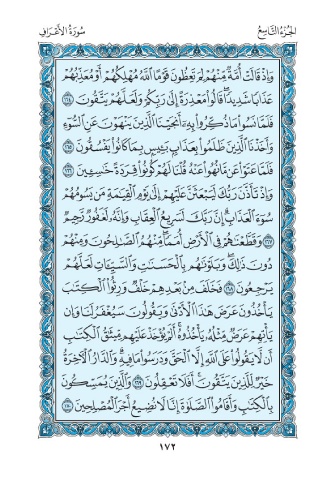 الجزء التاسع
سورة الأعراف
وَإِذْ قَالَتْ أُمَّةٌ مِّنْهُمْ لِمَ تَعِظُونَ قَوْمًا ٱللَّهُ مُهْلِكُهُمْ أَوْ مُعَذِّبُهُمْ
عَذَابًا شَدِيدًا ۖ قَالُوا۟ مَعْذِرَةً إِلَىٰ رَبِّكُمْ وَلَعَلَّهُمْ يَتَّقُونَ ١٦٤
فَلَمَّا نَسُوا۟ مَا ذُكِّرُوا۟ بِهِۦٓ أَنجَيْنَا ٱلَّذِينَ يَنْهَوْنَ عَنِ ٱلسُّوٓءِ
وَأَخَذْنَا ٱلَّذِينَ ظَلَمُوا۟ بِعَذَابٍۭ بَـِٔيسٍۭ بِمَا كَانُوا۟ يَفْسُقُونَ
١٦٥ فَلَمَّا عَتَوْا۟ عَن مَّا نُهُوا۟ عَنْهُ قُلْنَا لَهُمْ كُونُوا۟ قِرَدَةً خَـٰسِـِٔينَ ١٦٦
وَإِذْ تَأَذَّنَ رَبُّكَ لَيَبْعَثَنَّ عَلَيْهِمْ إِلَىٰ يَوْمِ ٱلْقِيَـٰمَةِ مَن يَسُومُهُمْ
سُوٓءَ ٱلْعَذَابِ ۗ إِنَّ رَبَّكَ لَسَرِيعُ ٱلْعِقَابِ ۖ وَإِنَّهُۥ لَغَفُورٌ رَّحِيمٌ
١٦٧ وَقَطَّعْنَـٰهُمْ فِى ٱلْأَرْضِ أُمَمًا ۖ مِّنْهُمُ ٱلصَّـٰلِحُونَ وَمِنْهُمْ
دُونَ ذَٰلِكَ ۖ وَبَلَوْنَـٰهُم بِٱلْحَسَنَـٰتِ وَٱلسَّيِّـَٔاتِ لَعَلَّهُمْ
يَرْجِعُونَ ١٦٨ فَخَلَفَ مِنۢ بَعْدِهِمْ خَلْفٌ وَرِثُوا۟ ٱلْكِتَـٰبَ
يَأْخُذُونَ عَرَضَ هَـٰذَا ٱلْأَدْنَىٰ وَيَقُولُونَ سَيُغْفَرُ لَنَا وَإِن
يَأْتِهِمْ عَرَضٌ مِّثْلُهُۥ يَأْخُذُوهُ ۚ أَلَمْ يُؤْخَذْ عَلَيْهِم مِّيثَـٰقُ ٱلْكِتَـٰبِ
أَن لَّا يَقُولُوا۟ عَلَى ٱللَّهِ إِلَّا ٱلْحَقَّ وَدَرَسُوا۟ مَا فِيهِ ۗ وَٱلدَّارُ ٱلْـَٔاخِرَةُ
خَيْرٌ لِّلَّذِينَ يَتَّقُونَ ۗ أَفَلَا تَعْقِلُونَ ١٦٩ وَٱلَّذِينَ يُمَسِّكُونَ
بِٱلْكِتَـٰبِ وَأَقَامُوا۟ ٱلصَّلَوٰةَ إِنَّا لَا نُضِيعُ أَجْرَ ٱلْمُصْلِحِينَ ١٧٠
١٧٢